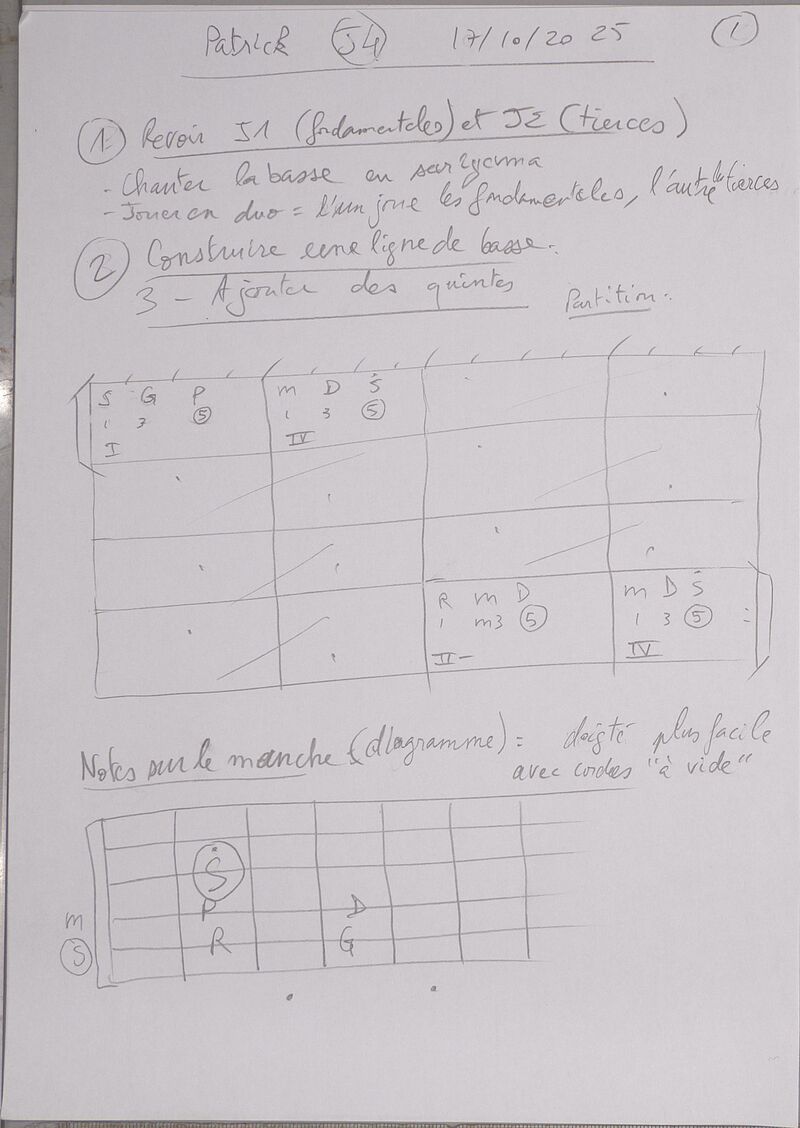 Patrick J4 17/10/2025 1
1 Revoir J1 (fondamentales) et J2 (tierces)
- Chanter la basse en sargam
- Jouer en duo = l'un joue les fondamentales, l'autre les tierces
2 Construire une ligne de basse.
3 - Ajouter des quintes
Partition.
S G P m D Ṡ
1 3 5 1 3 5
I IV
R m D m D Ṡ
1 m3 5 1 3 5
II- IV
Notes sur le manche (diagramme) = doigté plus facile
avec cordes "à vide"
Ṡ
m P D
S R G